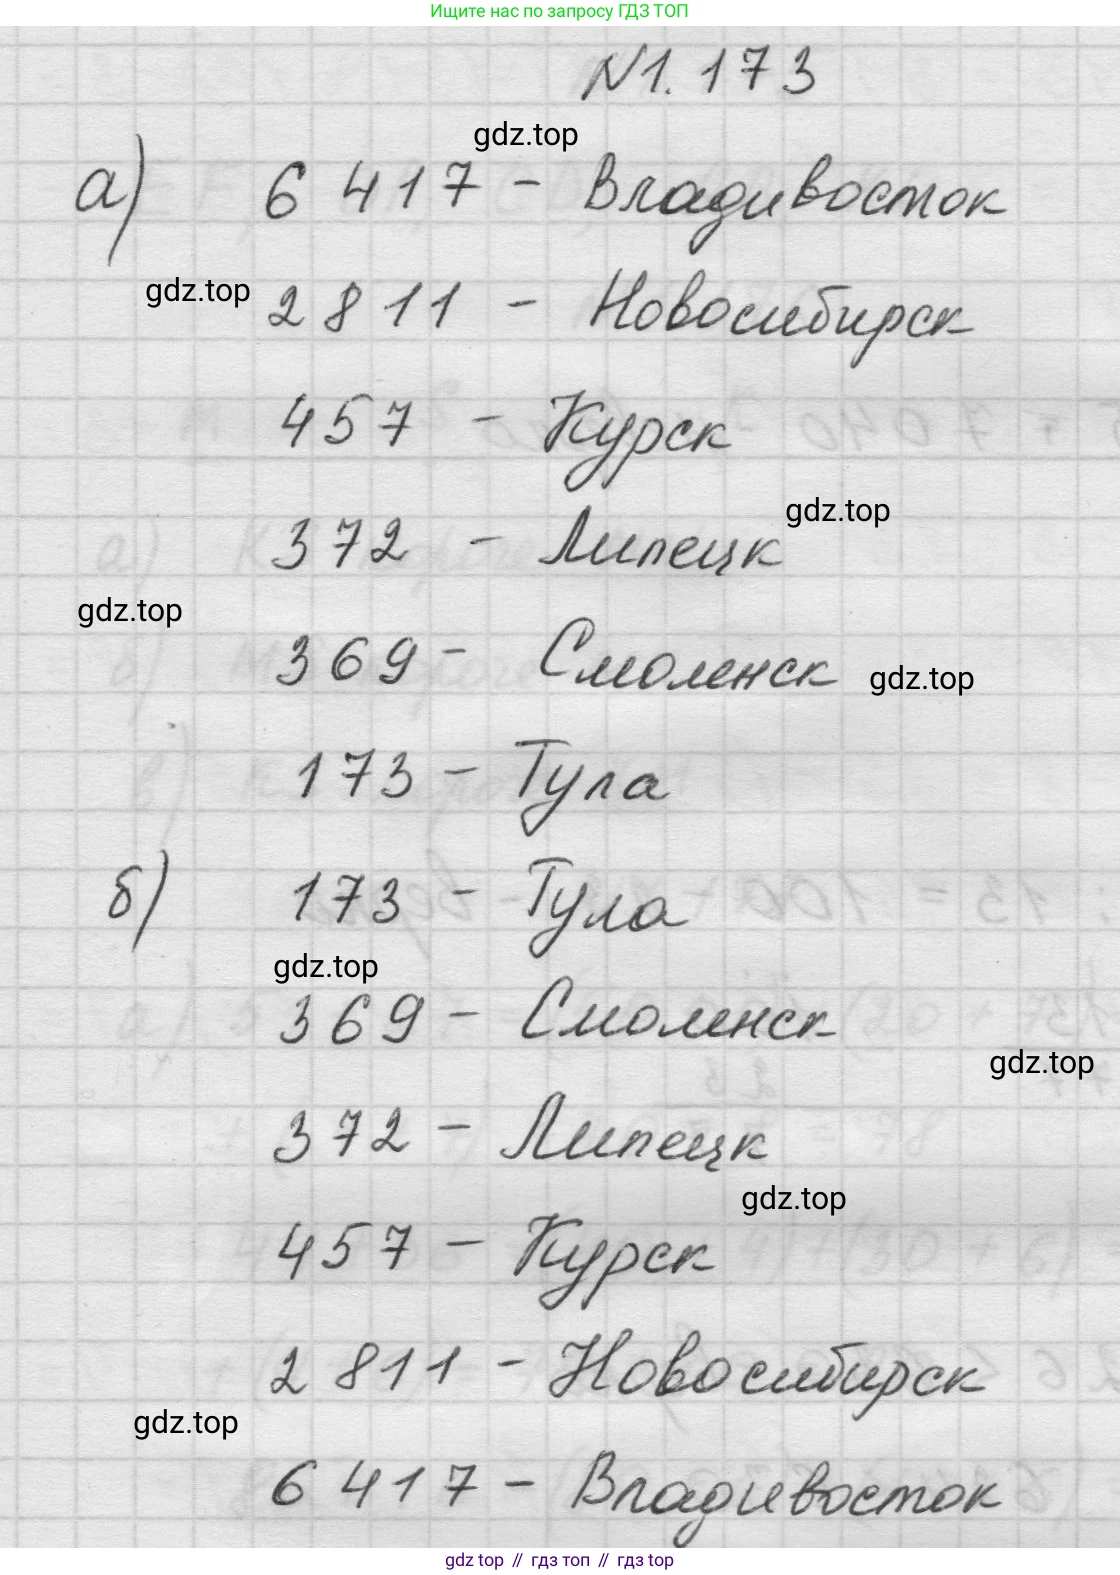 Ищите нас по запросу ГДЗ ТОП
N1.173
gdz.top
а) 6 417 - Владивосток
gdz.top
2 811 - Новосибирск
457 - Курск
gdz.top
372 - Липецк
gdz.top
369 - Смоленск
gdz.top
173 - Тула
б) 173 - Тула
gdz.top
369 - Смоленск
gdz.top
372 - Липецк
gdz.top
457 - Курск
2 811 - Новосибирск
gdz.top
6 417 - Владивосток
gdz top // гдз топ // gdz top